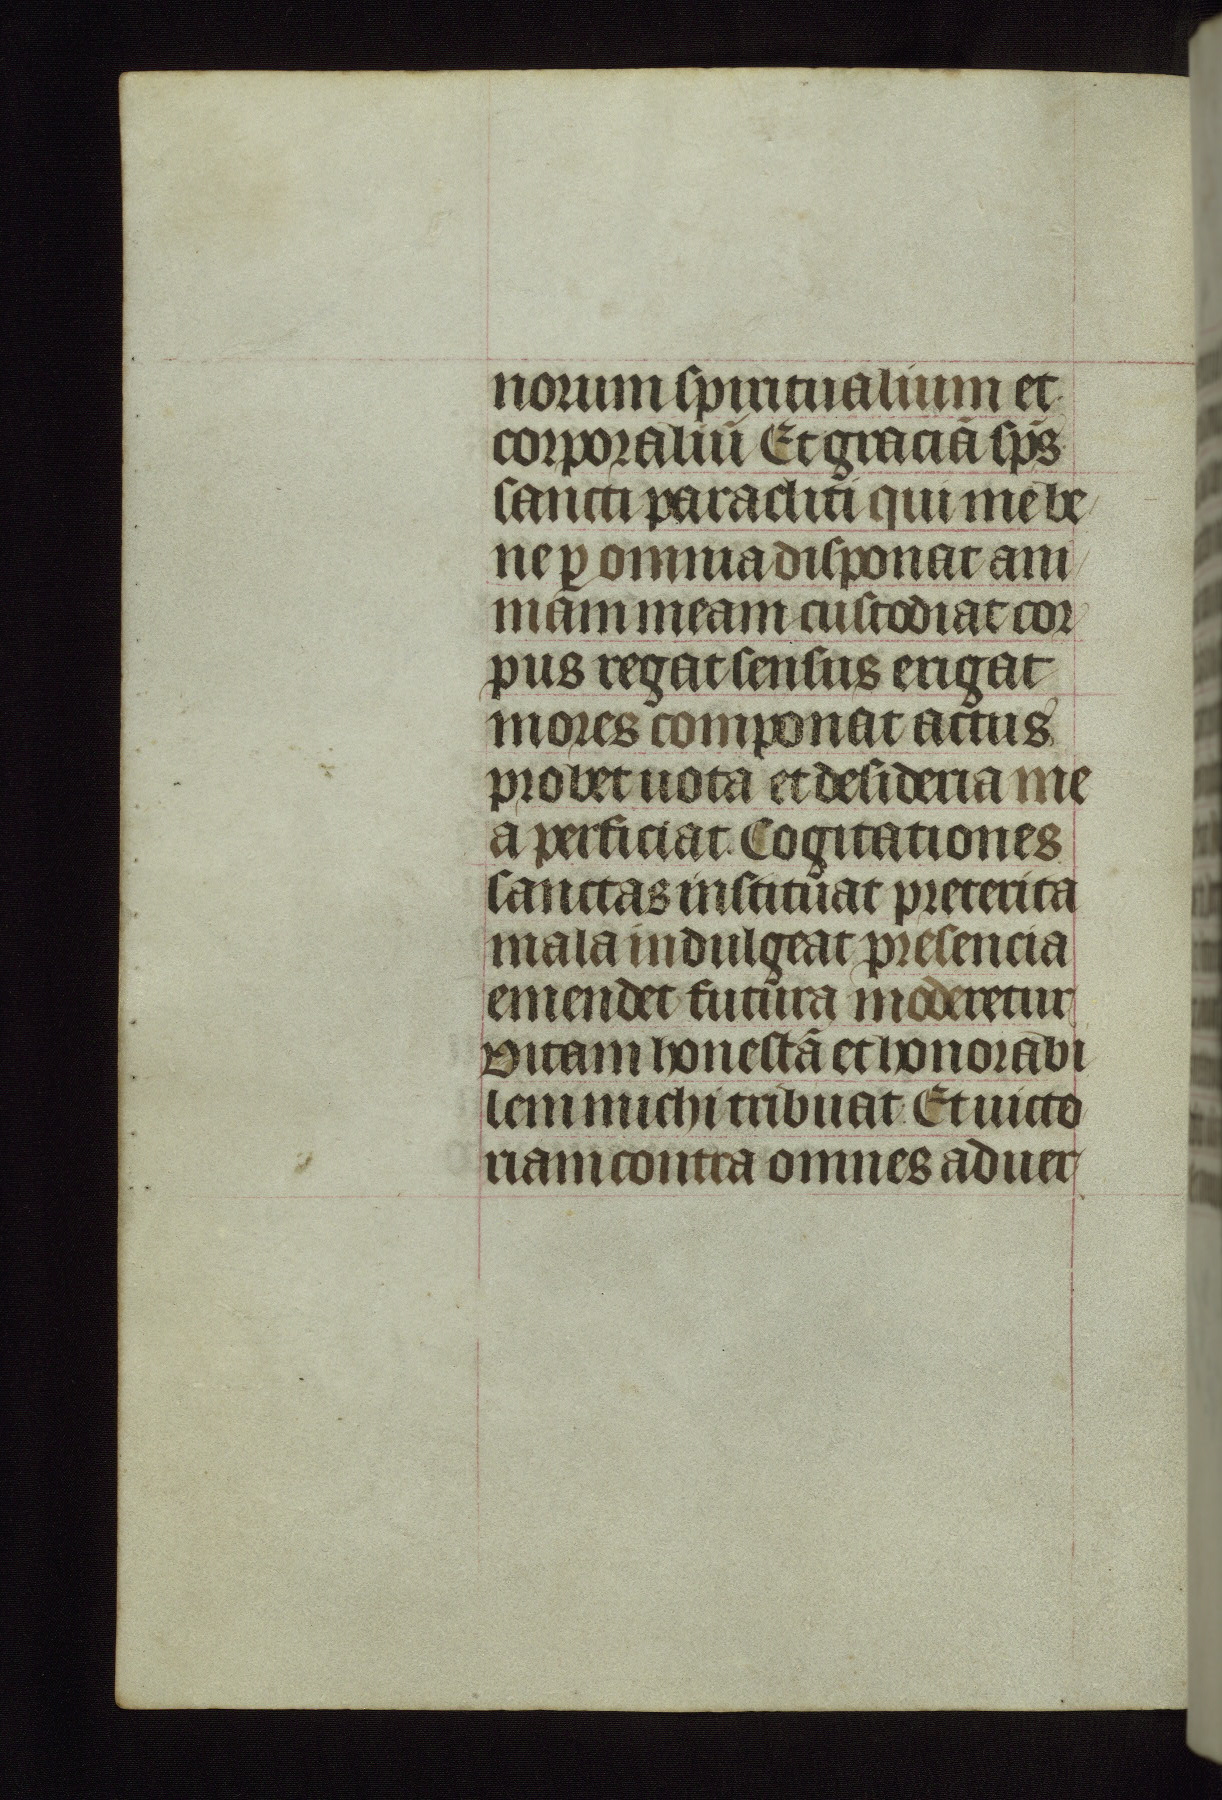 norum spiritualium et
corporaliū Et graciā sp̄s
sancti paracliti qui me be
ne ꝑ omnia disponat ani
mam meam custodiat cor
pus regat sensus erigat
mores componat actus
probet uota et desideria me
a perficiat Cogitationes
sanctas instituat preterita
mala indulgeat presencia
emendet futura moderetur
Vitam honestā et honorabi
lem michi tribuat Et uicto
riam contra omnes aduer